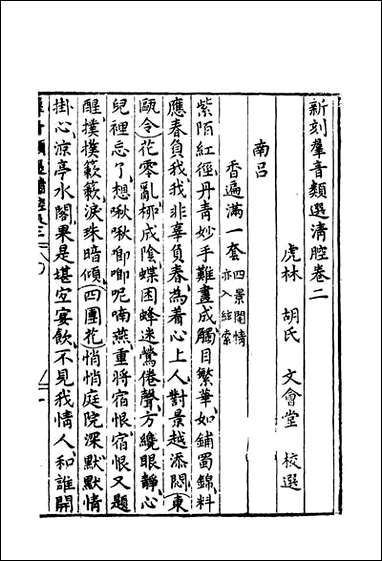 新刻羣音類選清腔卷二
虎林 胡氏 文會堂 校選
南呂
香遍滿一套 四景閨情 亦入絃索
紫陌紅徑丹青妙手難畫成觸目繁華如鋪蜀錦料
應春負我我非辜負春為着心上人對景越添悶(東
甌令)花零亂柳成陰蝶困蜂迷鶯倦聲方纔眼靜心
兒裡忘了想啾啾唧唧呢喃燕重將宿恨宿恨又題
醒撲撲簌簌淚珠暗傾(四團花)悄悄庭院深默默情
掛心凉亭水閣果是堪宜宴飲不見我情人和誰開